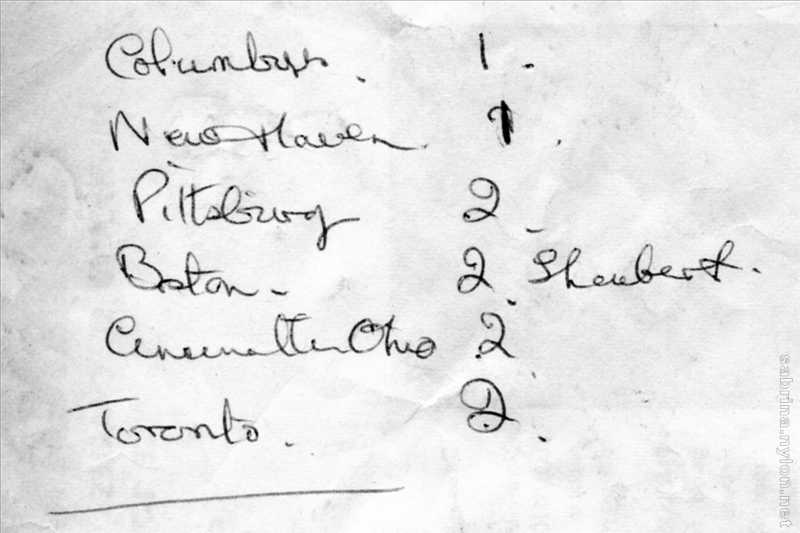 Columbus. 1.
New Haven. 1.
Pittsburg 2
Boston - 2 Sheubert.
Cincinatti Ohio 2
Toronto. 2.
sabrina.nylon.net